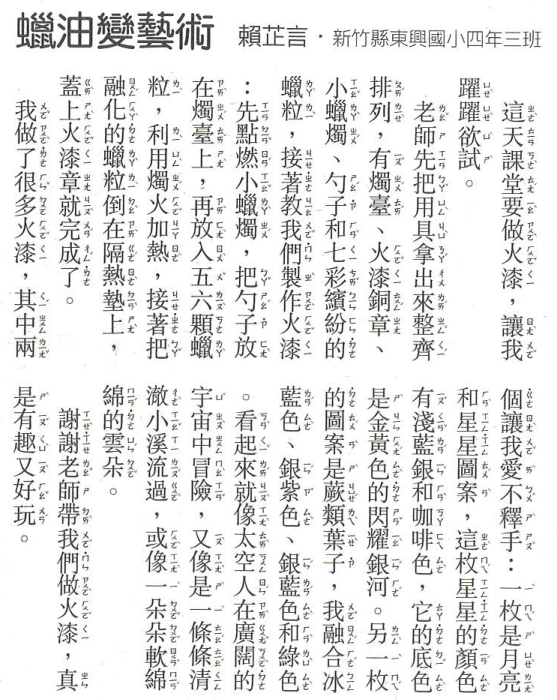 蠟油變藝術 賴芷言・新竹縣東興國小四年三班
這天課堂要做火漆，讓我
躍躍欲試。
老師先把用具拿出來整齊
排列，有燭臺、火漆銅章、
小蠟燭、勺子和七彩繽紛的
蠟粒，接著教我們製作火漆
：先點燃小蠟燭，把勺子放
在燭臺上，再放入五六顆蠟
粒，利用燭火加熱，接著把
融化的蠟粒倒在隔熱墊上，
蓋上火漆章就完成了。
我做了很多火漆，其中兩
個讓我愛不釋手：一枚是月亮
和星星圖案，這枚星星的顏色
有淺藍銀和咖啡色，它的底色
是金黃色的閃耀銀河。另一枚
的圖案是蕨類葉子，我融合冰
藍色、銀紫色、銀藍色和綠色
。看起來就像太空人在廣闊的
宇宙中冒險，又像是一條條清
澈小溪流過，或像一朵朵軟綿
綿的雲朵。
謝謝老師帶我們做火漆，真
是有趣又好玩。